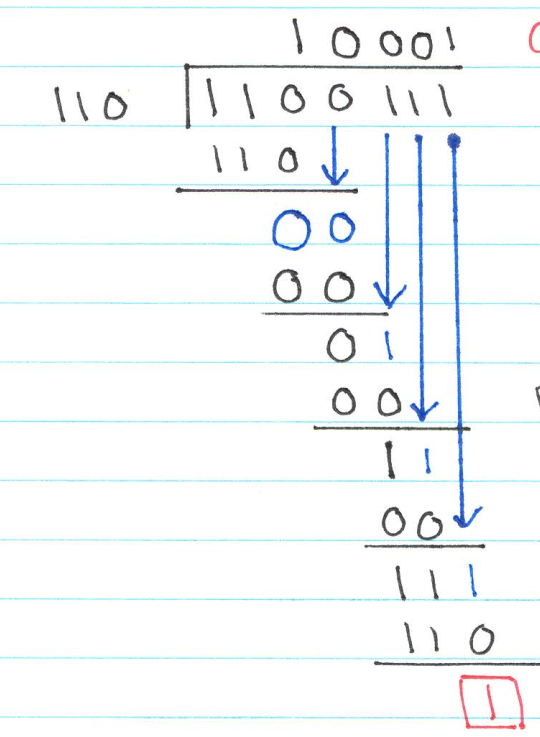 1 0 0 0 1
1 1 0 1 1 0 0 1 1 1
1 1 0
0 0
0 0
0 1
0 0
1 1
0 0
1 1 1
1 1 0
1